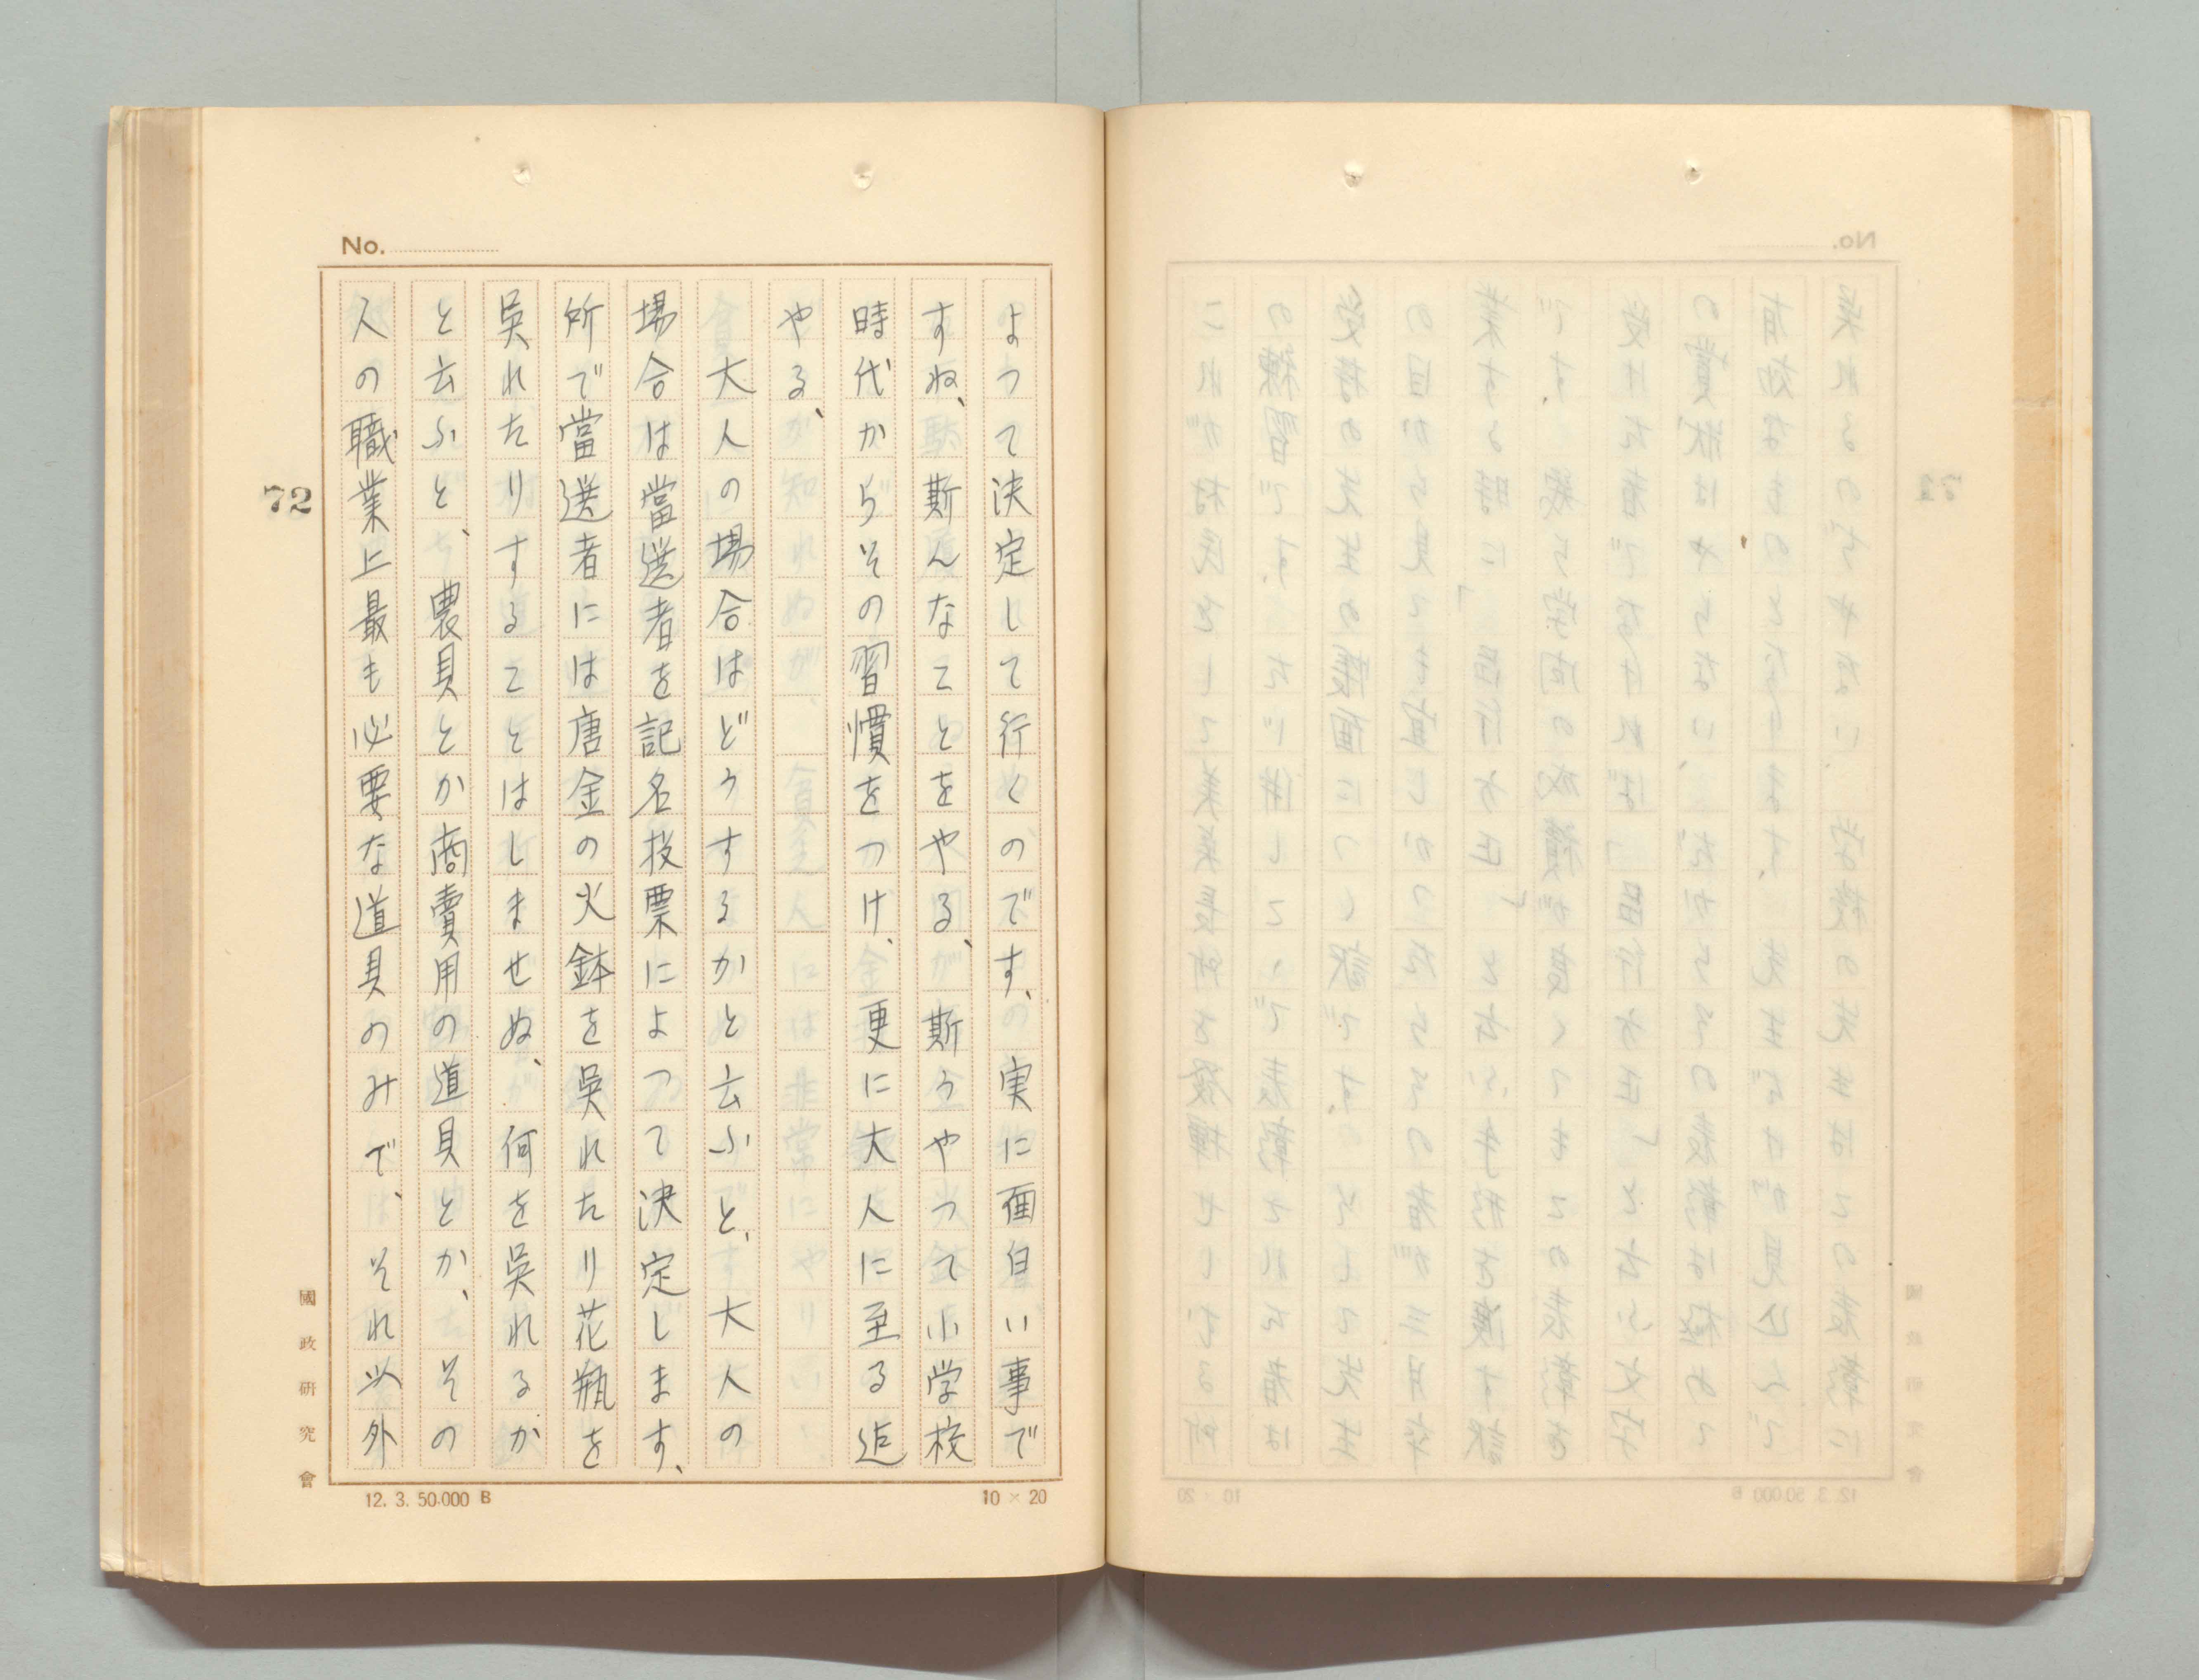 No.
よつて決定して行くのです、実に面白い事で
すね、斯んなことをやる、斯うやつて小学校
時代からその習慣をつけ、更に大人に至る迄
やる、
大人の場合はどうするかと云ふと、大人の
場合は當選者を記名投票によつて決定します、
所で當選者には唐金の火鉢を呉れたり花瓶を
呉れたりすることはしませぬ、何を呉れるか
と云ふと、農具とか商賣用の道具とか、その
人の職業上最も必要な道具のみで、それ以外
72
國政研究會
12. 3. 50.000 B
10 × 20